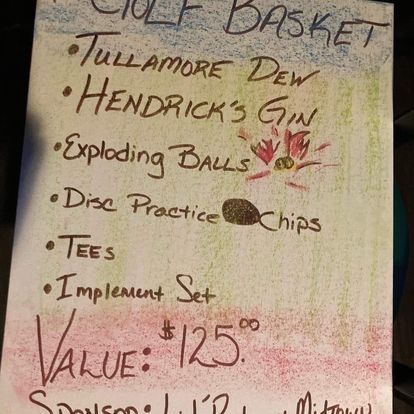 GOLF BASKET
• TULLAMORE DEW
• HENDRICK'S GIN
• Exploding BALLS
• Disc Practice Chips
• TEES
• Implement Set
VALUE: $125.00
SPONSOR: